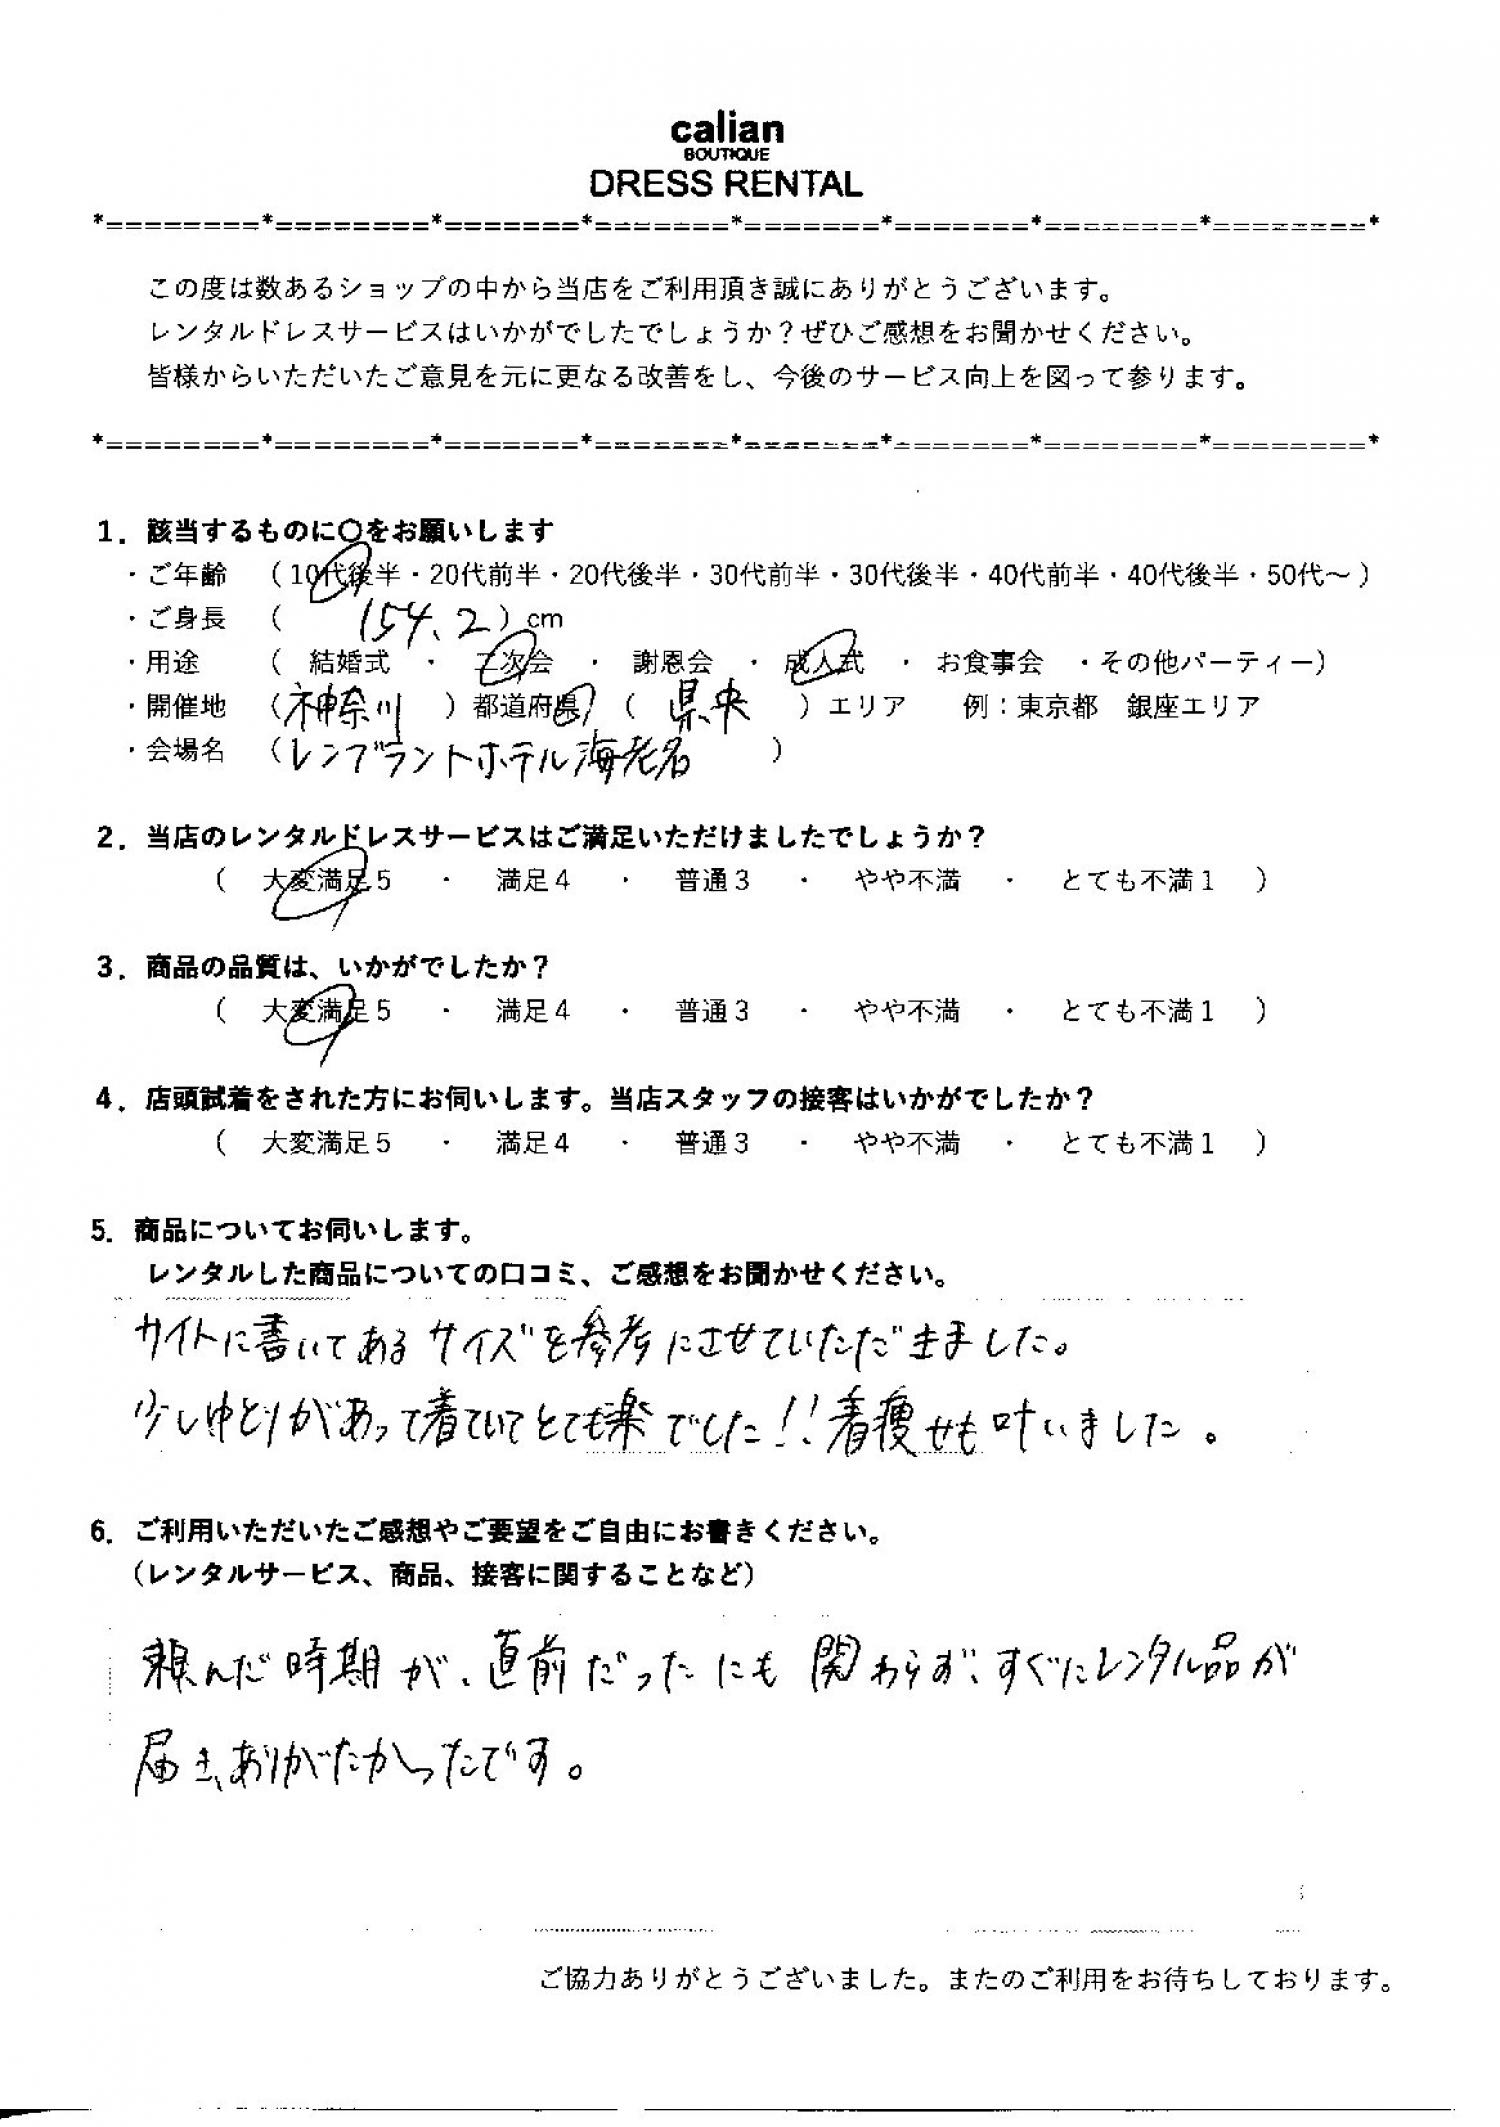 calian
BOUTIQUE
DRESS RENTAL
*========*========*=======*=======*=======*=======*========*========*
この度は数あるショップの中から当店をご利用頂き誠にありがとうございます。
レンタルドレスサービスはいかがでしたでしょうか？ぜひご感想をお聞かせください。
皆様からいただいたご意見を元に更なる改善をし、今後のサービス向上を図って参ります。
*========*========*=======*=======*=======*=======*========*========*
1．該当するものに〇をお願いします
・ご年齢 （10代後半・20代前半・20代後半・30代前半・30代後半・40代前半・40代後半・50代～）
・ご身長 （ 154.2）cm
・用途 （ 結婚式 ・ 二次会 ・ 謝恩会 ・ 成人式 ・ お食事会 ・その他パーティー）
・開催地 （神奈川 ）都道府県 （ 県央 ）エリア 例：東京都 銀座エリア
・会場名 （レンブラントホテル海老名 ）
2．当店のレンタルドレスサービスはご満足いただけましたでしょうか？
（ 大変満足5 ・ 満足4 ・ 普通3 ・ やや不満 ・ とても不満1 ）
3．商品の品質は、いかがでしたか？
（ 大変満足5 ・ 満足4 ・ 普通3 ・ やや不満 ・ とても不満1 ）
4．店頭試着をされた方にお伺いします。当店スタッフの接客はいかがでしたか？
（ 大変満足5 ・ 満足4 ・ 普通3 ・ やや不満 ・ とても不満1 ）
5．商品についてお伺いします。
レンタルした商品についての口コミ、ご感想をお聞かせください。
サイトに書いてあるサイズを参考にさせていただきました。
少しゆとりがあって着ていてとても楽でした!!着痩せも叶いました。
6．ご利用いただいたご感想やご要望をご自由にお書きください。
（レンタルサービス、商品、接客に関することなど）
頼んだ時期が、直前だったにも関わらず、すぐにレンタル品が
届き、ありがたかったです。
ご協力ありがとうございました。またのご利用をお待ちしております。